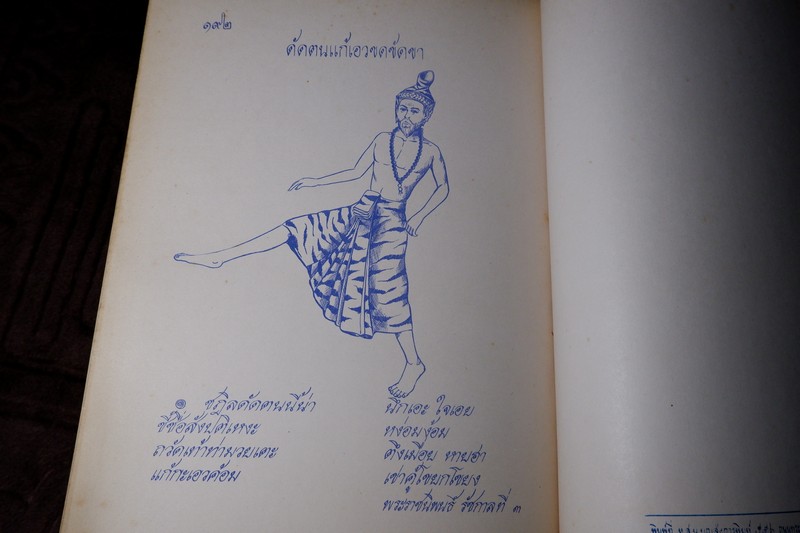 ๑๙๒
ดัดตนแก้เอวขดขัดขา
๏ ชฎิลดัดตนนี้น่า นึกเอะ ใจเอย
ชี่ชื่อสังปติเหงะ หง่อมง้อม
ถวัดเท้าท่ามวยเตะ ตึงเมื่อย หายฮา
แก้กะเอวค้อม เข่าคู้โขยกโขยง
พระราชนิพนธ์ รัชกาลที่ ๓
พิมพ์ที่